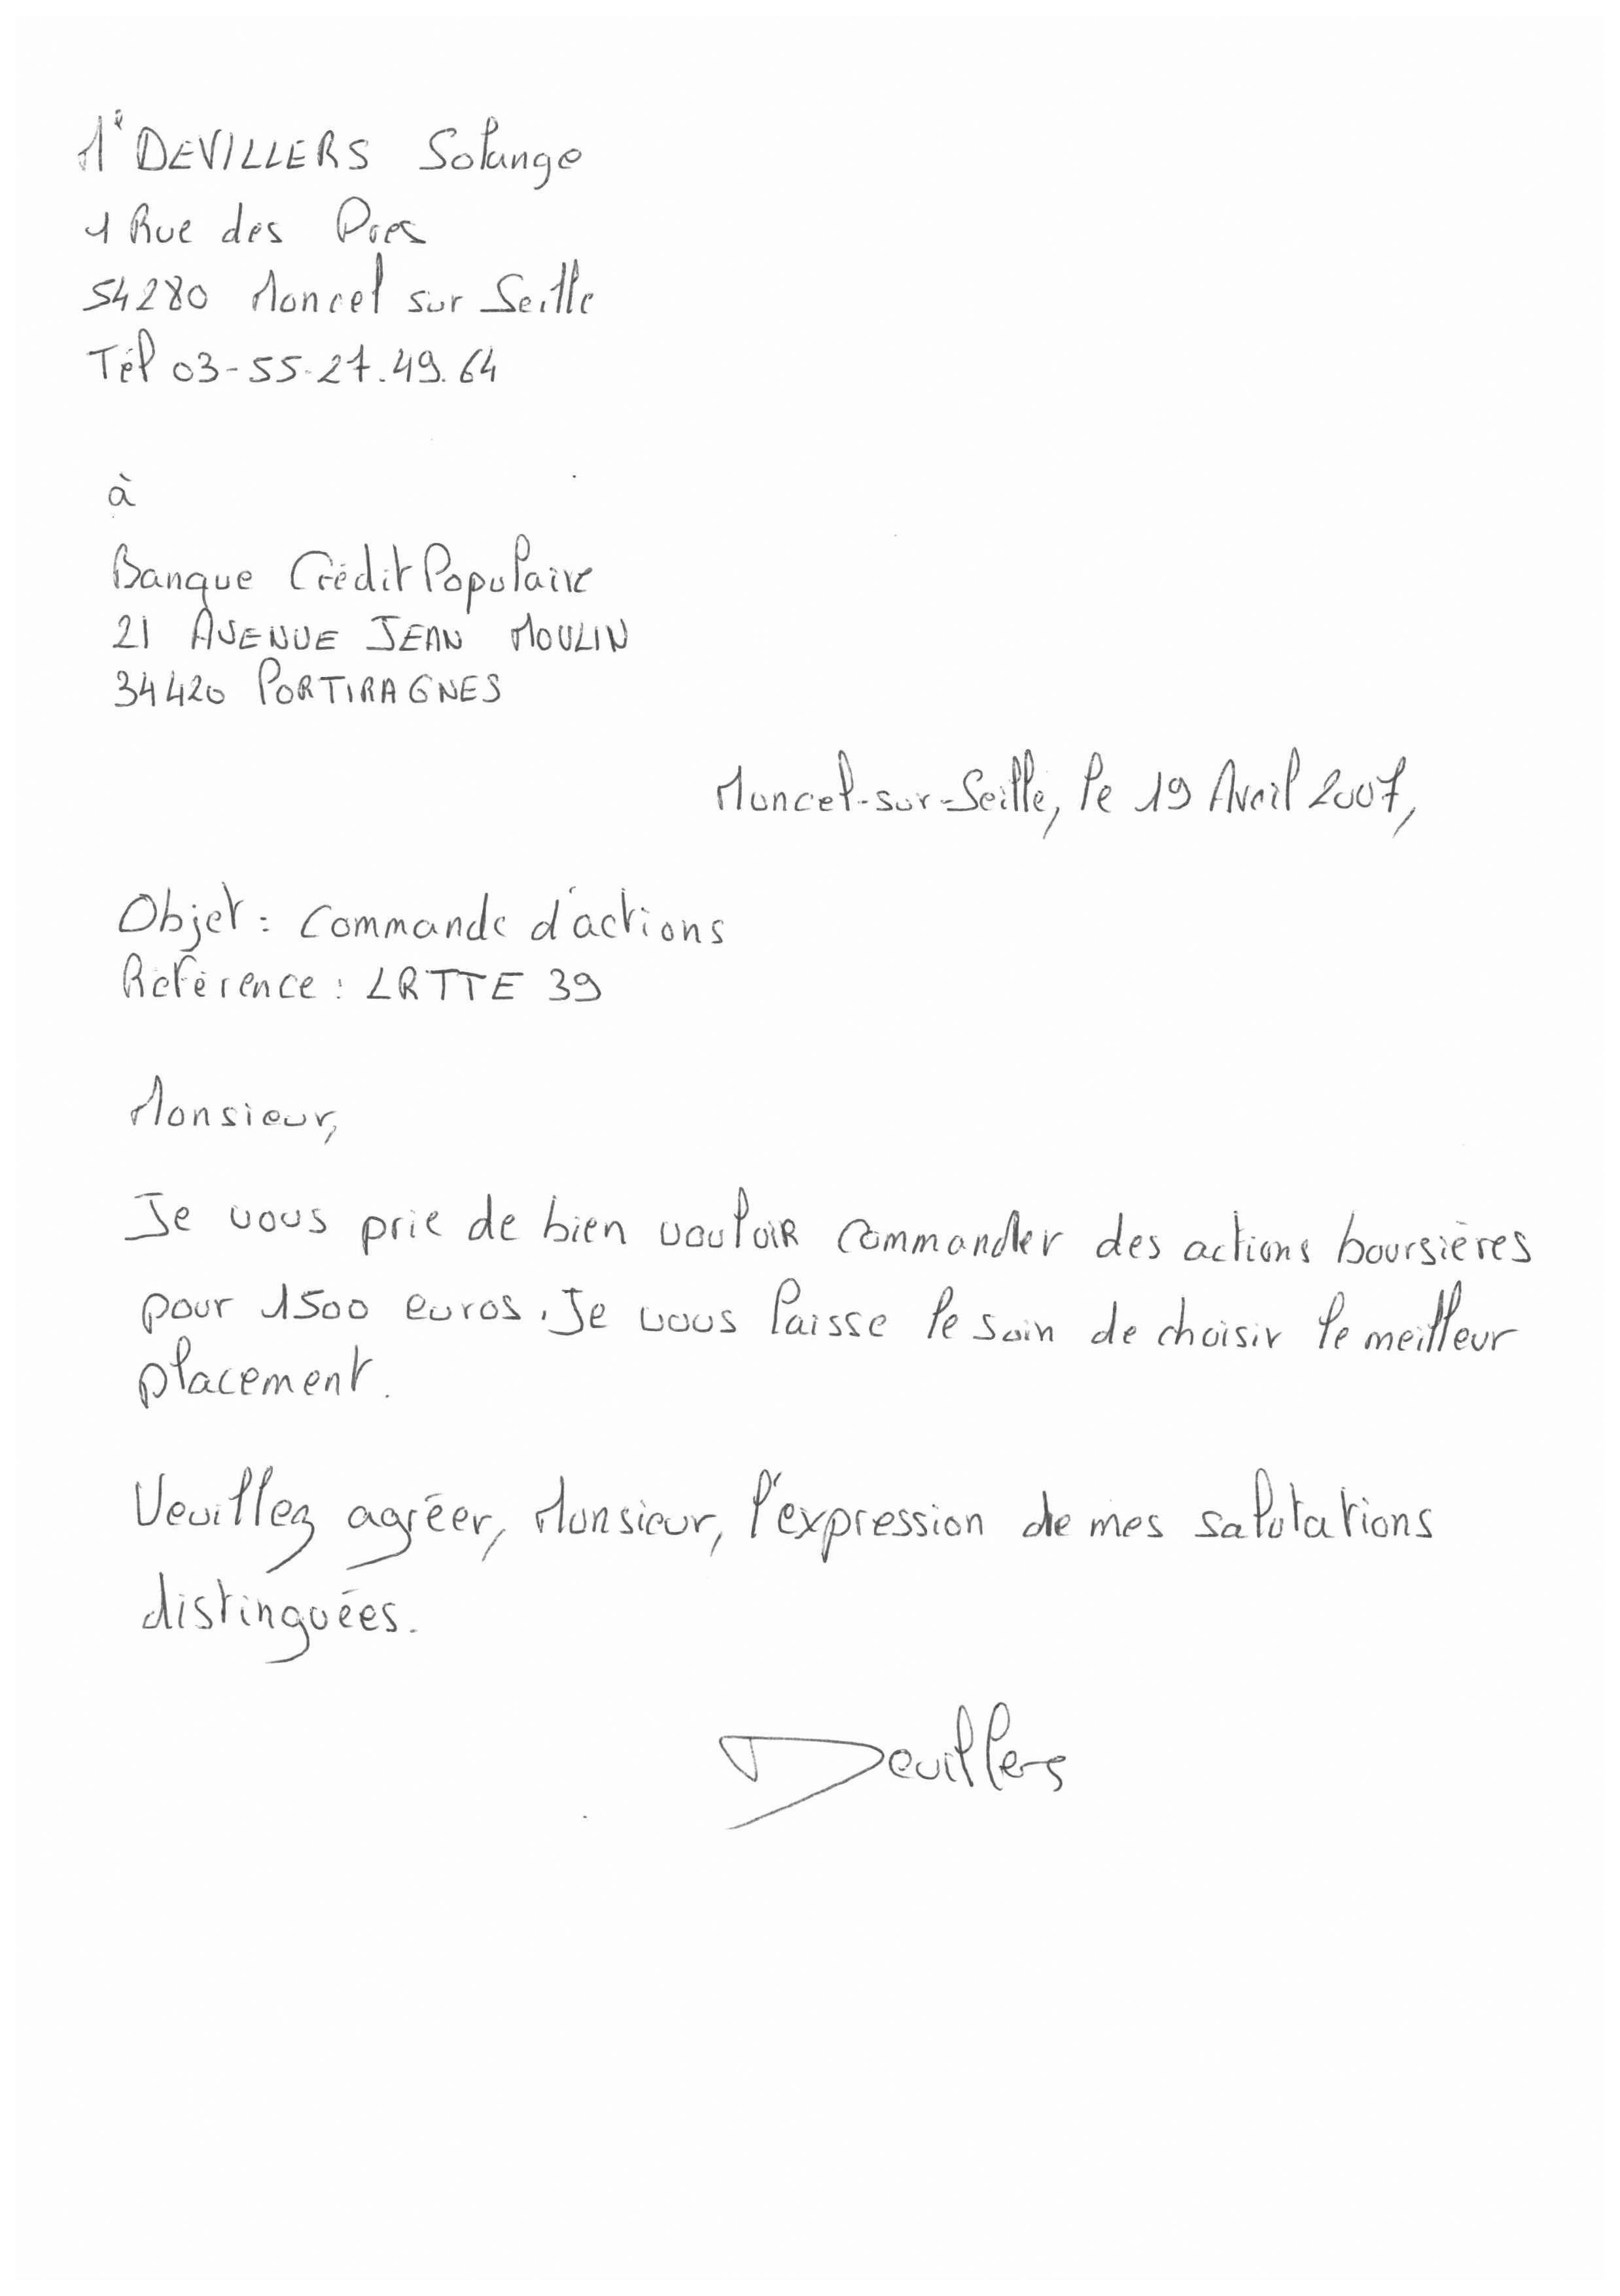 Me DEVILLERS Solange
1 Rue des Pres
54280 Moncel sur Seille
Tél 03-55-27.49.64
à
Banque Crédit Populaire
21 AVENUE JEAN MOULIN
34420 PORTIRAGNES
Moncel-sur-Seille, le 19 Avril 2007,
Objet : Commande d'actions
Référence : LRTTE 39
Monsieur,
Je vous prie de bien vouloir commander des actions boursières
pour 1500 euros. Je vous laisse le soin de choisir le meilleur
placement.
Veuillez agréer, Monsieur, l'expression de mes salutations
distinguées.
Devillers